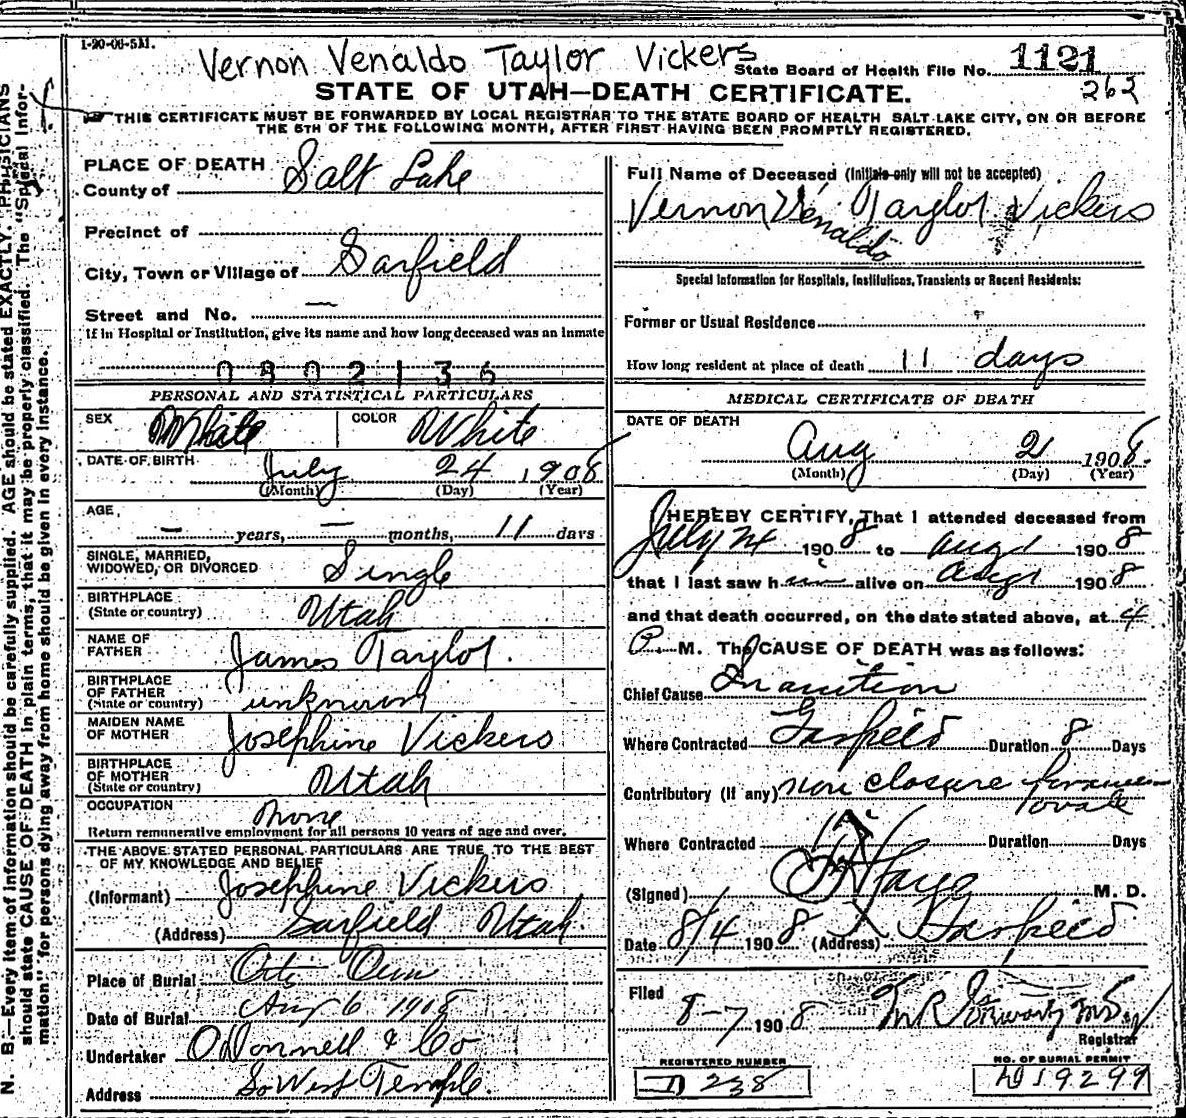 1-20-08-5M.
Vernon Venaldo Taylor Vickers
State Board of Health File No. 1121
262
STATE OF UTAH—DEATH CERTIFICATE.
THIS CERTIFICATE MUST BE FORWARDED BY LOCAL REGISTRAR TO THE STATE BOARD OF HEALTH SALT LAKE CITY, ON OR BEFORE
THE 5TH OF THE FOLLOWING MONTH, AFTER FIRST HAVING BEEN PROMPTLY REGISTERED.
N. B.—Every item of information should be carefully supplied. AGE should be stated EXACTLY. PHYSICIANS
should state CAUSE OF DEATH in plain terms, that it may be properly classified. The "Special Infor-
mation" for persons dying away from home should be given in every instance.
PLACE OF DEATH
County of Salt Lake
Precinct of
City, Town or Village of Garfield
Street and No. —
If in Hospital or Institution, give its name and how long deceased was an inmate
0802136
PERSONAL AND STATISTICAL PARTICULARS
SEX White COLOR White
DATE OF BIRTH July 24 1908
(Month) (Day) (Year)
AGE, — years, — months, 11 days
SINGLE, MARRIED,
WIDOWED, OR DIVORCED Single
BIRTHPLACE
(State or country) Utah
NAME OF
FATHER James Taylor.
BIRTHPLACE
OF FATHER
(State or country) unknown
MAIDEN NAME
OF MOTHER Josephine Vickers
BIRTHPLACE
OF MOTHER
(State or country) Utah
OCCUPATION None
Return remunerative employment for all persons 10 years of age and over.
THE ABOVE STATED PERSONAL PARTICULARS ARE TRUE TO THE BEST
OF MY KNOWLEDGE AND BELIEF
(Informant) Josephine Vickers
(Address) Garfield Utah.
Place of Burial City Cem
Date of Burial Aug 6 1908
Undertaker O'Donnell & Co
Address So West Temple.
Full Name of Deceased (Initials only will not be accepted)
Vernon Venaldo Taylor Vickers
Special Information for Hospitals, Institutions, Transients or Recent Residents:
Former or Usual Residence
How long resident at place of death 11 days
MEDICAL CERTIFICATE OF DEATH
DATE OF DEATH
Aug 2 1908.
(Month) (Day) (Year)
I HEREBY CERTIFY, That I attended deceased from
July 24 1908 to Aug 1 1908
that I last saw him alive on Aug 1 1908
and that death occurred, on the date stated above, at 4
P. M. The CAUSE OF DEATH was as follows:
Chief Cause Inanition
Where Contracted Garfield Duration 8 Days
Contributory (if any) non closure foramen
ovale
Where Contracted Duration Days
(Signed) M. D.
Date 8/4 1908 (Address) Garfield
Filed 8-7 1908
Registrar
REGISTERED NUMBER
D 238
NO. OF BURIAL PERMIT
D 19299